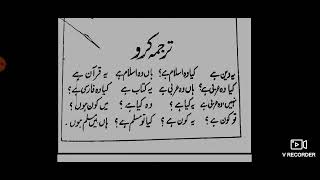 ترجمہ کرو
یہ دین ہے کیا وہ اسلام ہے؟ ہاں وہ اسلام ہے یہ قرآن ہے
کیا وہ عربی ہے؟ ہاں وہ عربی ہے یہ کتاب ہے کیا وہ فارسی ہے؟
نہیں وہ عربی ہے یہ کیا ہے؟ وہ کیا ہے؟ میں کون ہوں؟
تو کون ہے؟ یہ کون ہے؟ کیا تو مسلم ہے؟ ہاں میں مسلم ہوں۔
V RECORDER